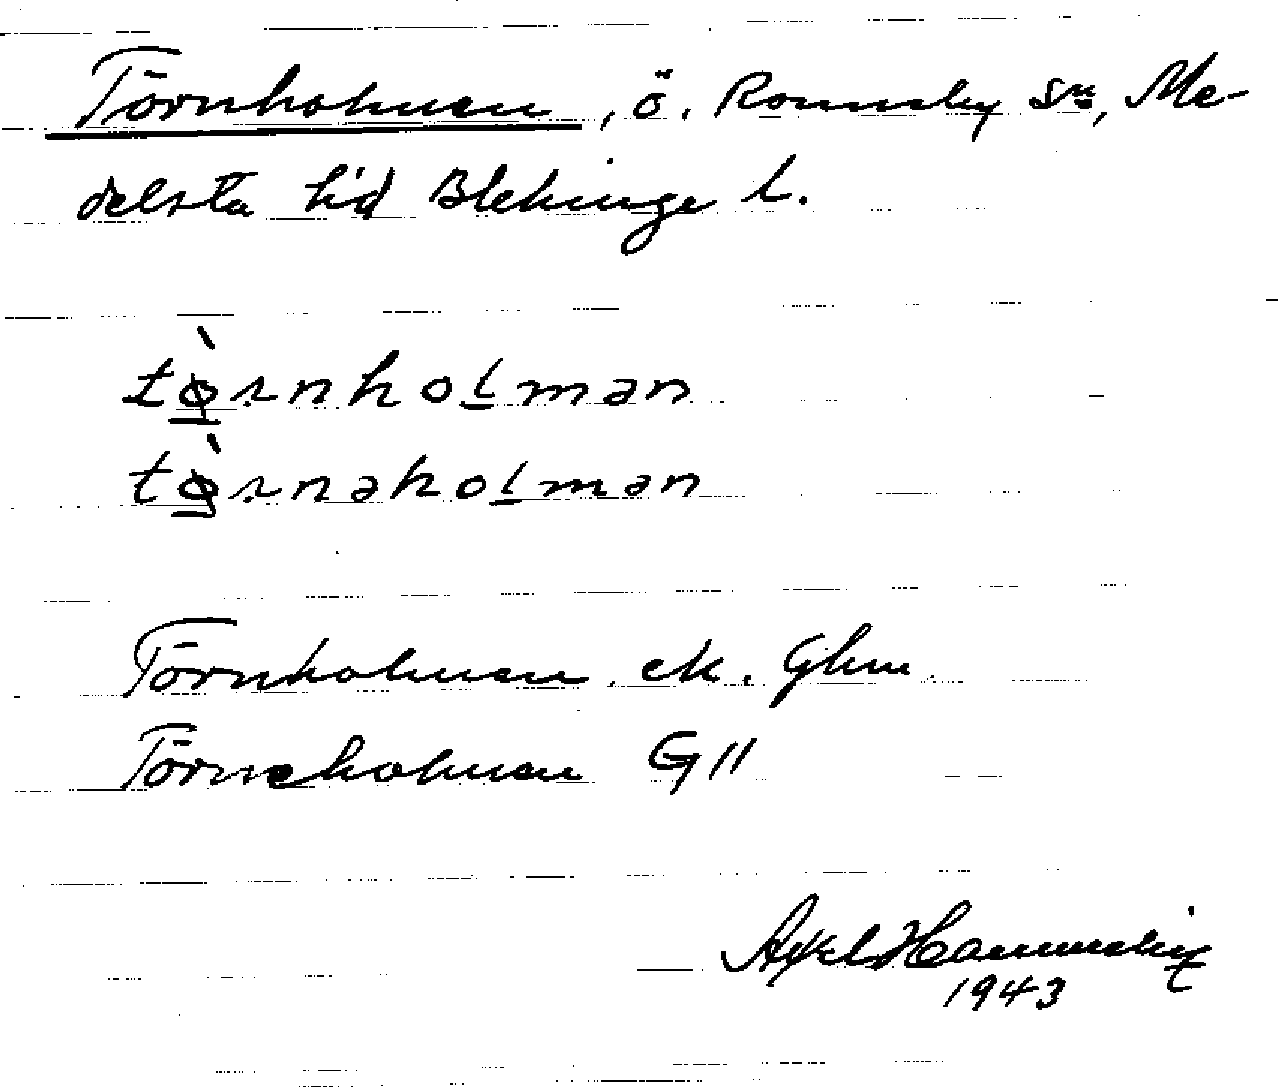 Törnholmen, ö. Ronneby sn, Me-
delsta hd Blekinge l.
tø̱̀rnhoḻmən
tø̱̀rnəhoḻmən
Törnholmen ek. Ghm.
Törneholmen G11
Axel
1943